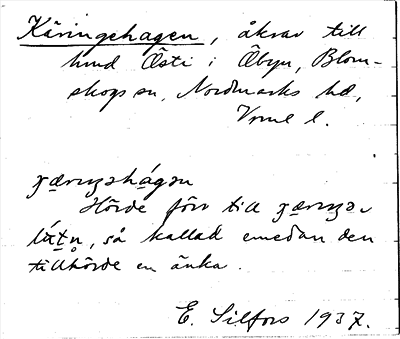 Käringehagen, åkrar till
hmd Östi i Öbyn, Blom-
skogs sn, Nordmarks hd,
Vrml l.
Hörde förr till
så kallad emedan den
tillhörde en änka.
E. Silfors 1937.